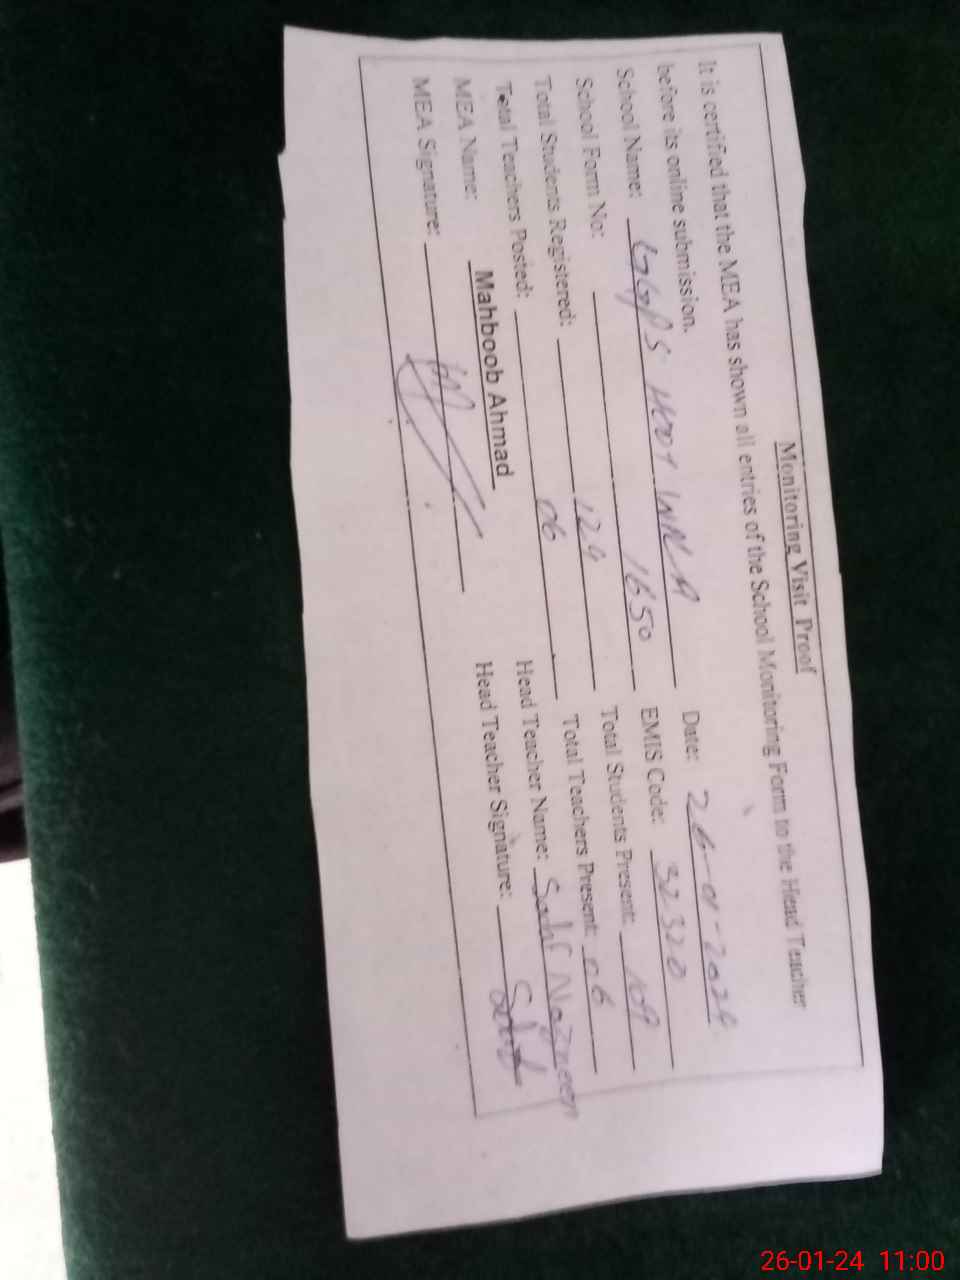 Monitoring Visit Proof
It is certified that the MEA has shown all entries of the School Monitoring Form to the Head Teacher
before its online submission.
School Name: GGPS Date: 26-01-2024
School Form No: 1650 EMIS Code: 32320
Total Students Registered: 129 Total Students Present: 109
Total Teachers Posted: 06 Total Teachers Present: 06
MEA Name: Mahboob Ahmad Head Teacher Name: Sadaf Nazneen
MEA Signature: Head Teacher Signature: Sadaf
26-01-24 11:00